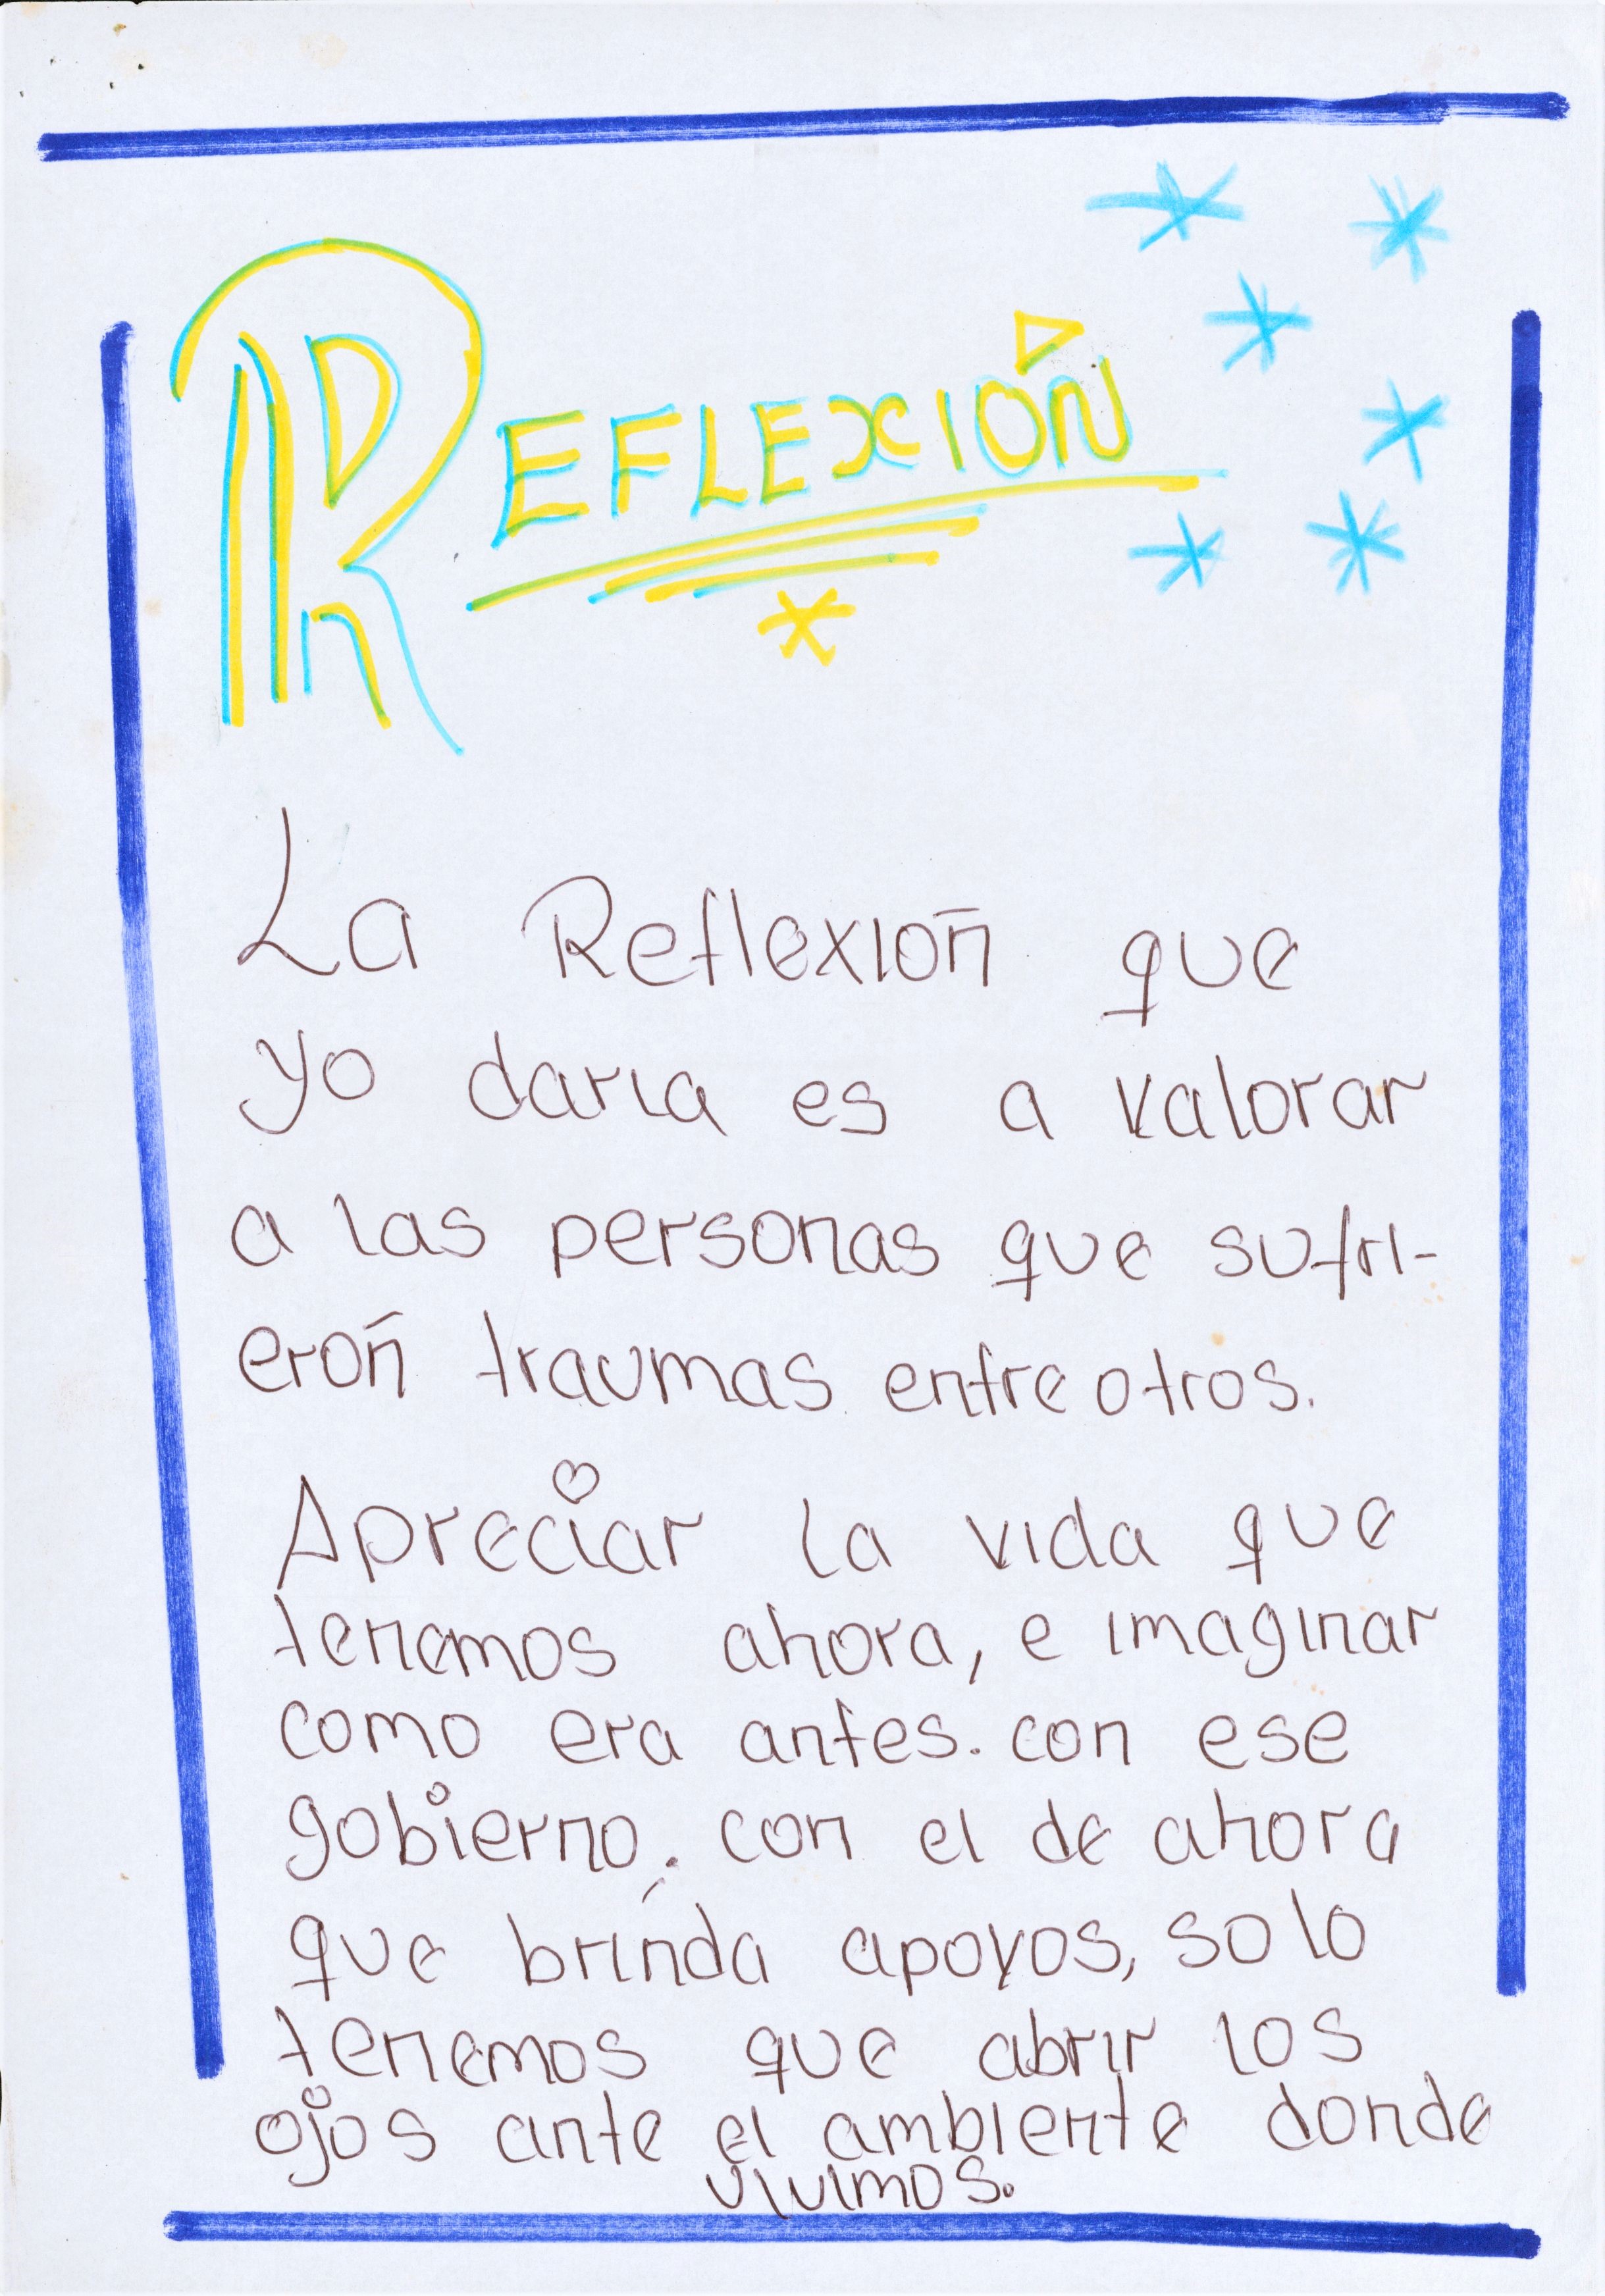 REFLEXIÓN
La Reflexión que
yo daria es a valorar
a las personas que sufri-
erón traumas entre otros.
Apreciar la vida que
tenemos ahora, e imaginar
como era antes. con ese
gobierno. con el de ahora
que brinda apoyos, solo
tenemos que abrir los
ojos ante el ambiente donde
vivimos.